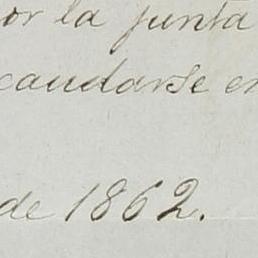 or la junta
caudarse en
de 1862.